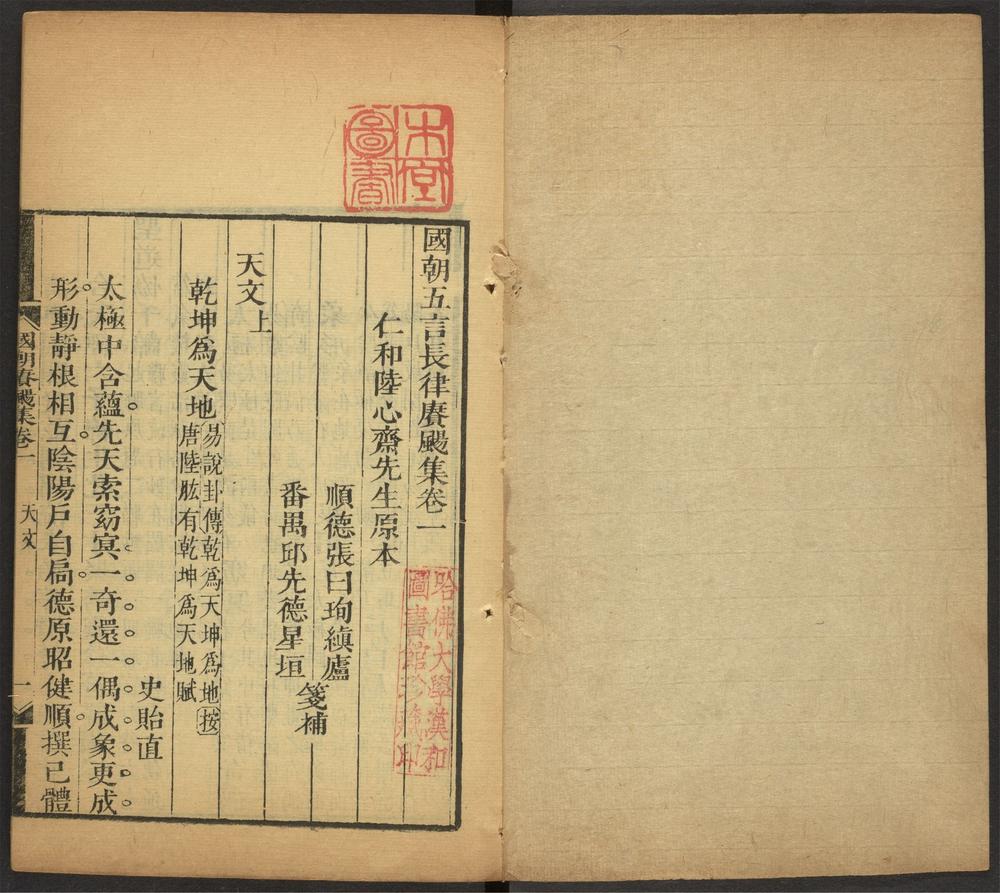 國朝五言長律賡颺集卷一
仁和陸心齋先生原本
順德張日珣縝廬
番禺邱先德星垣
箋補
天文上
乾坤爲天地
易說卦傳乾爲天坤爲地按
唐陸肱有乾坤爲天地賦
史貽直
太極中含蘊先天索窈冥一奇還一偶成象更成
形動靜根相互陰陽戶自扃德原昭健順撰已體
國朝賡颺集卷一
天文
一
圖書
哈佛大學漢和
圖書館珍藏印